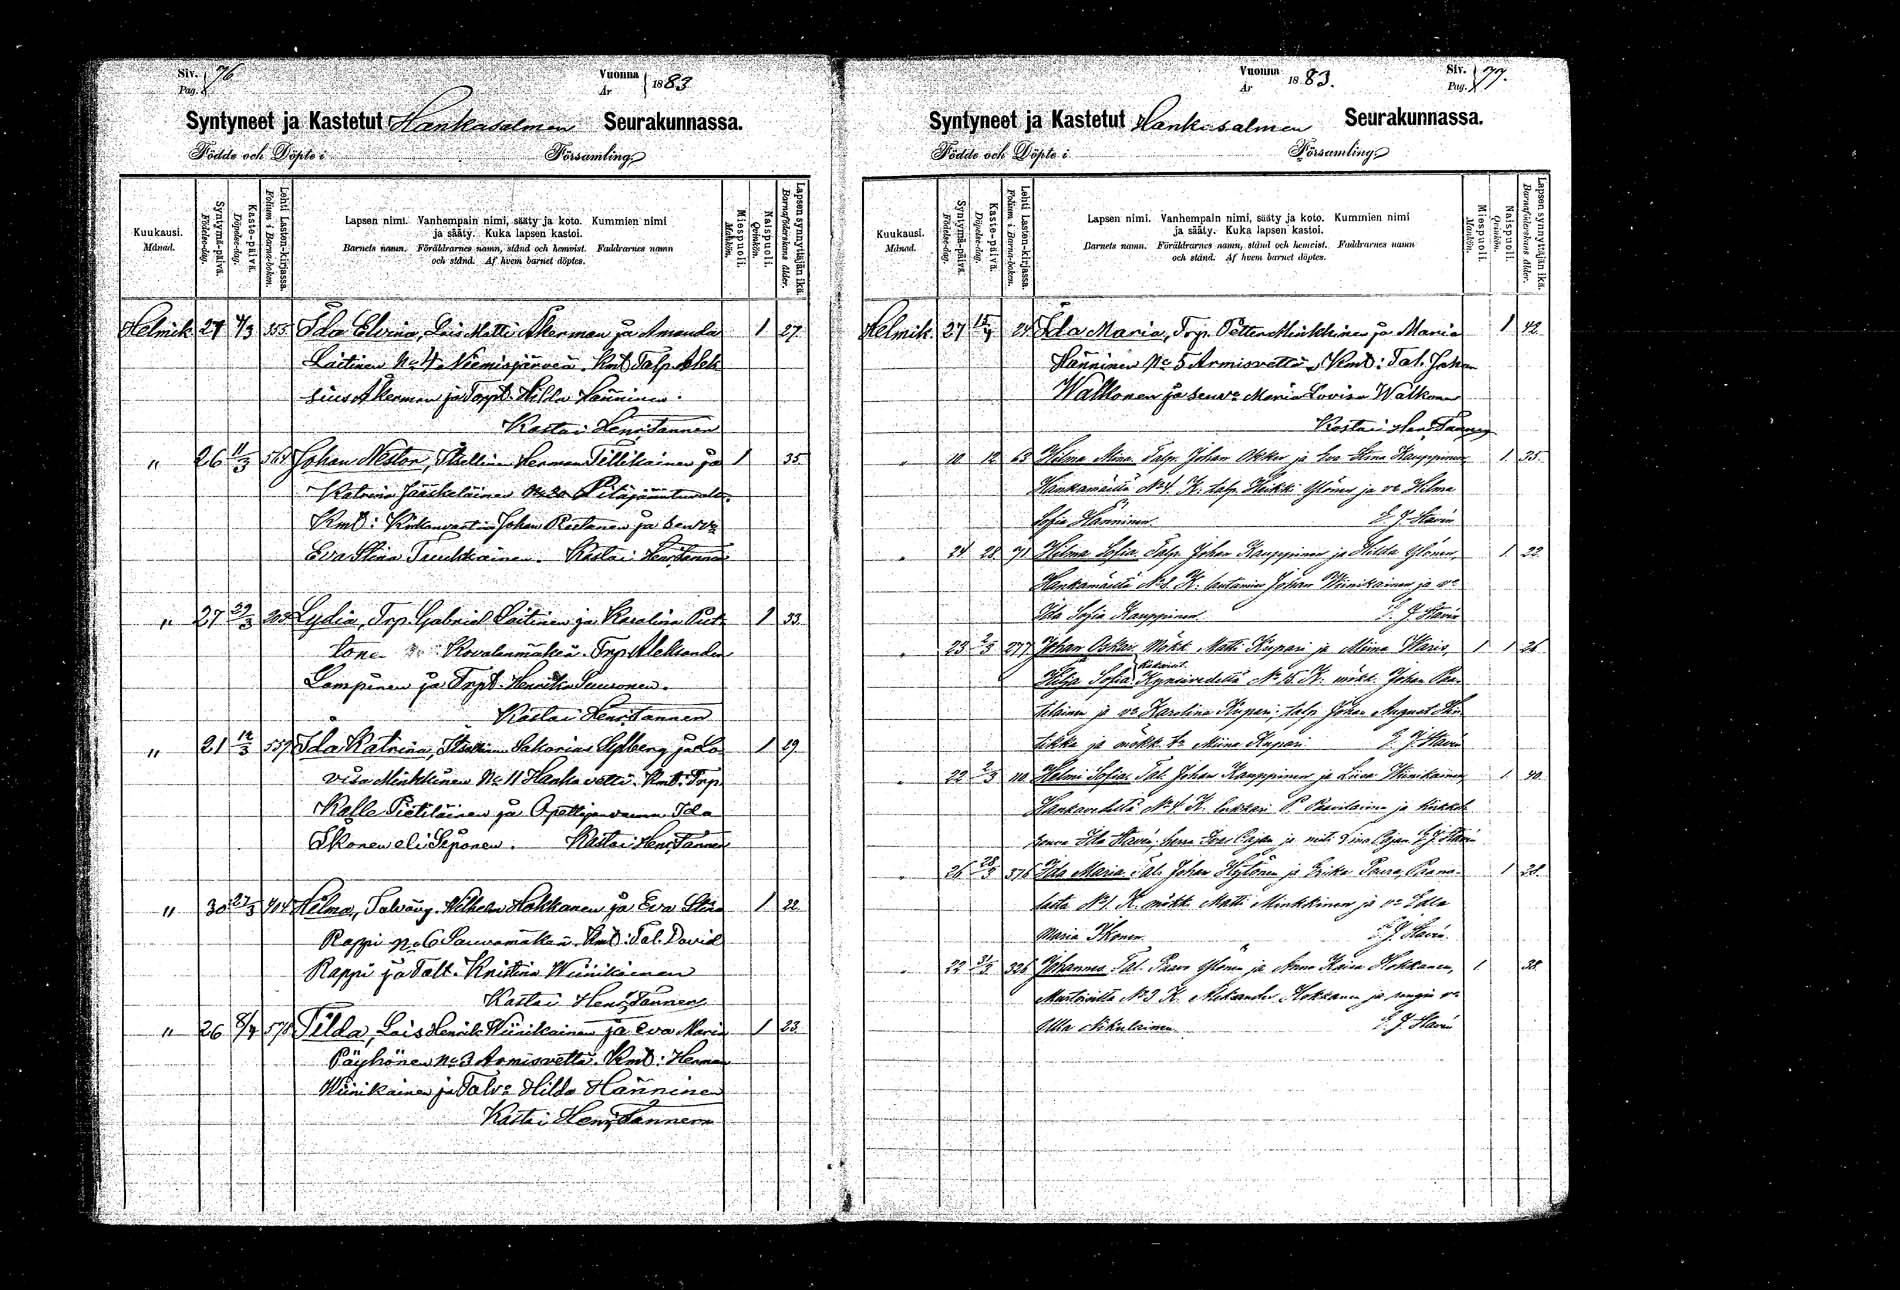 Siv. 76
Pag.
Vuonna 1883
År
Syntyneet ja Kastetut Hankasalmen Seurakunnassa.
Födde och Döpte i Församling
Kuukausi. Månad.
Syntymä-päivä. Födelse-dag.
Kaste-päivä. Döpelse-dag.
Lehti Lasten-kirjassa. Folium i Barna-boken.
Lapsen nimi. Vanhempain nimi, sääty ja koto. Kummien nimi
ja sääty. Kuka lapsen kastoi.
Barnets namn. Föräldrarnes namn, stånd och hemvist. Faddrarnes namn
och stånd. Af hvem barnet döptes.
Miespuoli. Mankön.
Naispuoli. Qvinkön.
Lapsen synnyttäjän ikä. Barnaföderskans ålder.
Helmik 27 4/3 355 Ida Elvina, Lois Matti Åkerman ja Amanda 1 27
Laitinen No 4 Niemisjärven. Kmt Talp. Alek
sius Åkerman ja Torpt. Hilda Hänninen.
Kastai Henr. Tannen
" 26 11/3 564 Johan Nestor, Itsellinen Herman Tillikainen ja 1 35
Katrina Jääskeläinen No 20
Kmt: Johan ja
Eva Stina Kastai Henr. Tannen
" 27 29/3 Lydia, Trp. Gabriel Laitinen ja Karolina Piet- 1 33
tonen Kovalanmäkeä. Trp. Aleksander
Lampinen ja Trpt. Henrika Suuronen.
Kastai Henr. Tannen
" 21 12/3 559 Ida Katrina, Sakarias Sylberg ja Lo- 1 29
visa Minkkinen No 11 Hankavettä. Kmt: Trp.
Kalle Pietiläinen ja Ida
Ikonen eli Seponen. Kastai Henr. Tannen
" 30 27/3 404 Hilma, Wilhelm Hakkanen ja Eva Stina 1 22
Rappi No 6 Sauvamäkeä. Kmt: Tal. David
Rappi ja Talt. Kristina Wiinikainen
Kastai Henr. Tannen
" 26 8/4 578 Tilda, Lois Henrik Wiinikainen ja Eva Maria 1 23
Päyhönen No 3 Armisvettä. Kmt: Herman
Wiinikainen ja Talv: Hilda Hänninen
Kastai Henr. Tannen
Vuonna 1883.
År
Siv. 77.
Pag.
Syntyneet ja Kastetut Hankasalmen Seurakunnassa.
Födde och Döpte i Församling
Kuukausi. Månad.
Syntymä-päivä. Födelse-dag.
Kaste-päivä. Döpelse-dag.
Lehti Lasten-kirjassa. Folium i Barna-boken.
Lapsen nimi. Vanhempain nimi, sääty ja koto. Kummien nimi
ja sääty. Kuka lapsen kastoi.
Barnets namn. Föräldrarnes namn, stånd och hemvist. Faddrarnes namn
och stånd. Af hvem barnet döptes.
Miespuoli. Mankön.
Naispuoli. Qvinkön.
Lapsen synnyttäjän ikä. Barnaföderskans ålder.
Helmik. 27 15/4 24 Ida Maria, Trp. Petter Minkkinen ja Maria 1 42
Hänninen No 5 Armisvettä. Kmt: Tal. Johan
Walkonen ja Maria Lovisa Walkonen
Kastai Henr. Tannen
" 10 12 63 Hilma Miina. Talp. Johan Okker ja Eva Stina Kauppinen, 1. 35.
Hankamäeltä No 4. K: talp. Heikki Ylönen ja v: Hilma
Sofia Hänninen. E. J. Stavén
" 24 28 71 Hilma Sofia. Talp. Johan Kauppinen ja Hilda Ylönen, 1. 22.
Hankamäeltä No 8. K: lautamies Johan Wiinikainen ja v:
Ida Sofia Kauppinen. E. J. Stavén
" 23 2/3 277 Johan Oskar. Mökt. Matti Kupari ja Miina Waris, 1 1 26
Hilja Sofia. Kynsivedeltä No 15. K: mökt. Johan Paa-
telainen ja v: Karolina Kupari, talp. Johan August
ja mökk. tr. Miina Kupari. E. J. Stavén
" 22 2/3 110 Helmi Sofia. Tal. Johan Kauppinen ja Liisa Wiinikainen, 1. 40
Hankavedeltä No 4. K: lukkari P. Paavilainen ja
rouva Ida Stavén, herra E. J. Stavén
" 26 28/3 376 Ida Maria. Tal. Johan Hytönen ja Erika Paura, Paana- 1 28.
lasta No 1. K: mökk. Matti Minkkinen ja v: Edla
Maria Ikonen. E. J. Stavén.
" 22 31/3 326 Johannes. Tal. Paavo Ylönen ja Anna Kaisa Hokkanen, 1. 38.
No 3 K: Aleksander Hokkanen ja v:
Ulla Nikulainen. E. J. Stavén